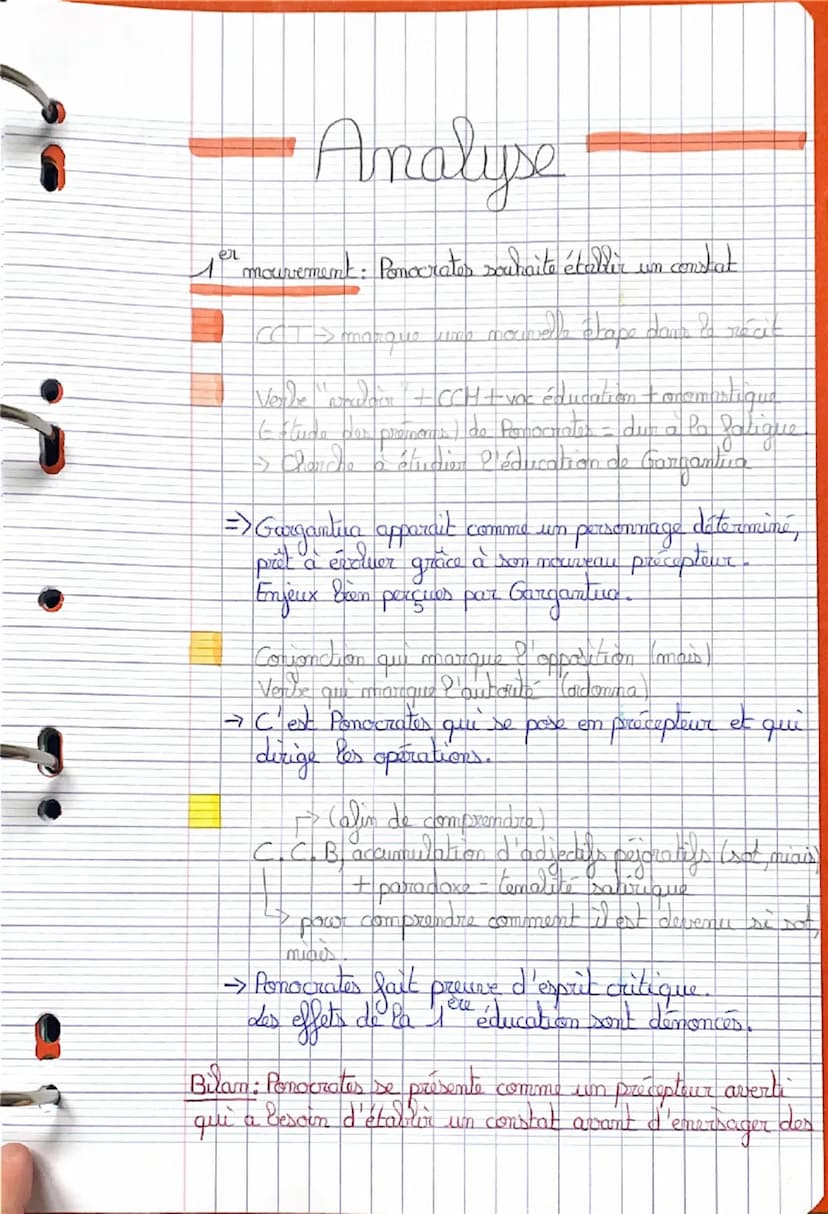 Analyse
1er mouvement : Ponocrates souhaite établir un constat
CCT → marque une nouvelle étape dans le récit
Verbe "vouloir" + CCM + voc éducation + onomastique
(= étude des prénoms) de Ponocrates = dur à la fatigue
→ Cherche à étudier l'éducation de Gargantua
=> Gargantua apparait comme un personnage déterminé,
prêt à évoluer grâce à son nouveau précepteur.
Enjeux bien perçues par Gargantua.
Conjonction qui marque l'opposition (mais)
Verbe qui marque l'autorité (ordonna)
→ C'est Ponocrates qui se pose en précepteur et qui
dirige les opérations.
↱ (afin de comprendre)
C.C.B, accumulation d'adjectifs péjoratifs (sot, niais)
+ paradoxe = tonalité satirique
↳ pour comprendre comment il est devenu si sot,
niais.
→ Ponocrates fait preuve d'esprit critique.
Les effets de la 1ère éducation sont dénoncés.
Bilan : Ponocrates se présente comme un précepteur averti
qui a besoin d'établir un constat avant d'envisager des